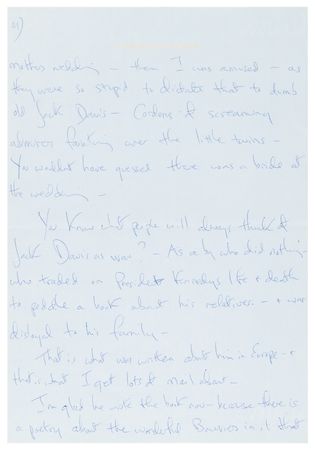 mothers wedding — then I was amused — as
they were so stupid to dictate that to dumb
old Jack Davis — Cordons of screaming
admirers fainting over the little twins —
You wouldn't have guessed there was a bride at
the wedding —
You know what people will always think of
Jack Davis as now? — As a boy who did nothing —
who traded on President Kennedys life + death
to peddle a book about his relatives — + was
disloyal to his family —
That is what was written about him in Europe — +
that is what I get lots of mail about —
I'm glad he wrote the book now — because there is
a poetry about the wonderful Bouviers in it that